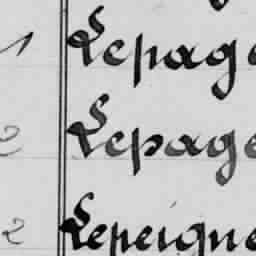 1 Lepage
2 Lepage
2 Lepeigne